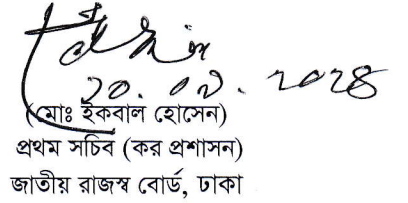 (মোঃ ইকবাল হোসেন)
প্রথম সচিব (কর প্রশাসন)
জাতীয় রাজস্ব বোর্ড, ঢাকা